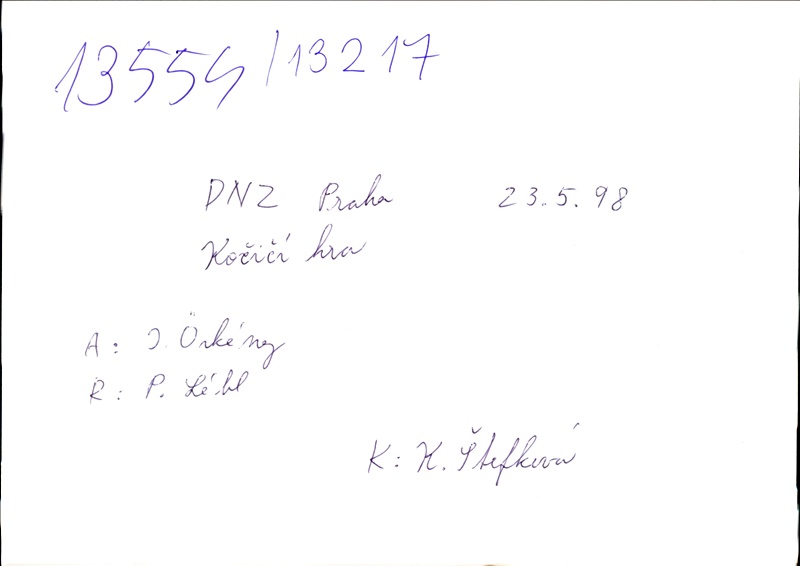 13554/13217
DNZ Praha 23.5.98
Kočičí hra
A: I. Örkény
R: P. Lébl
K: K. Štefková